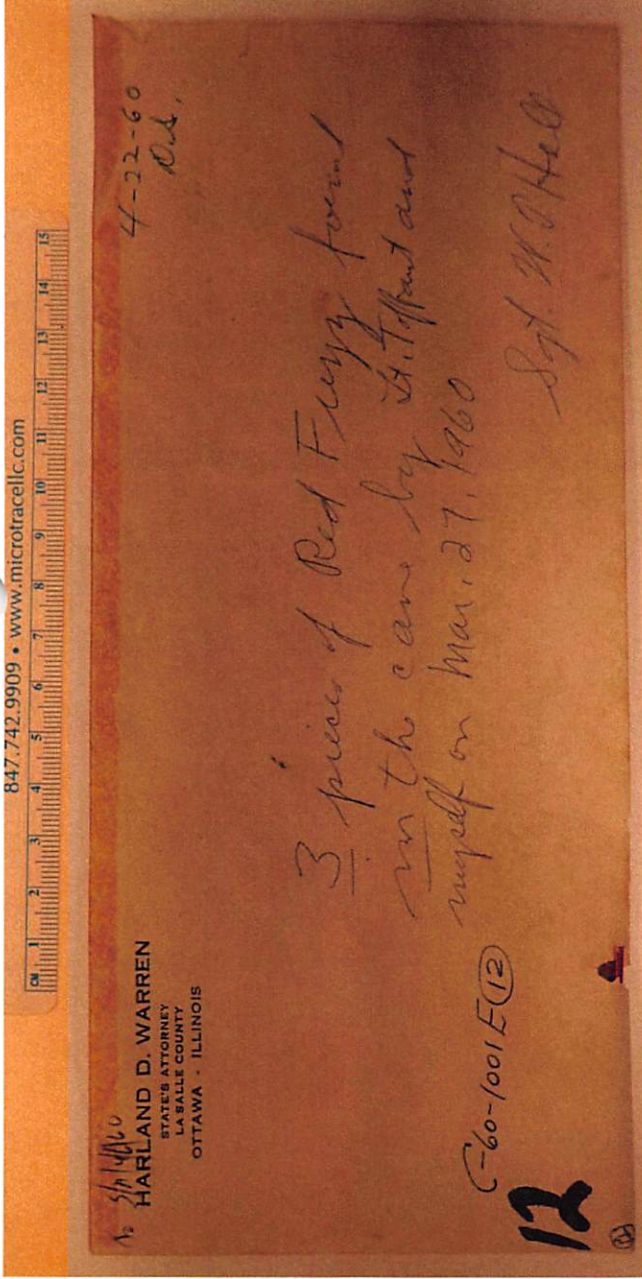 847.742.9909 • www.microtracellc.com
CM 1 2 3 4 5 6 7 8 9 10 11 12 13 14 15
HARLAND D. WARREN
STATE'S ATTORNEY
LA SALLE COUNTY
OTTAWA - ILLINOIS
4-22-60
3 pieces of Red Fuzz found
in the cave by Lt. and
myself on Mar. 27, 1960
Sgt. W. Hall
C-60-1001E 12
12